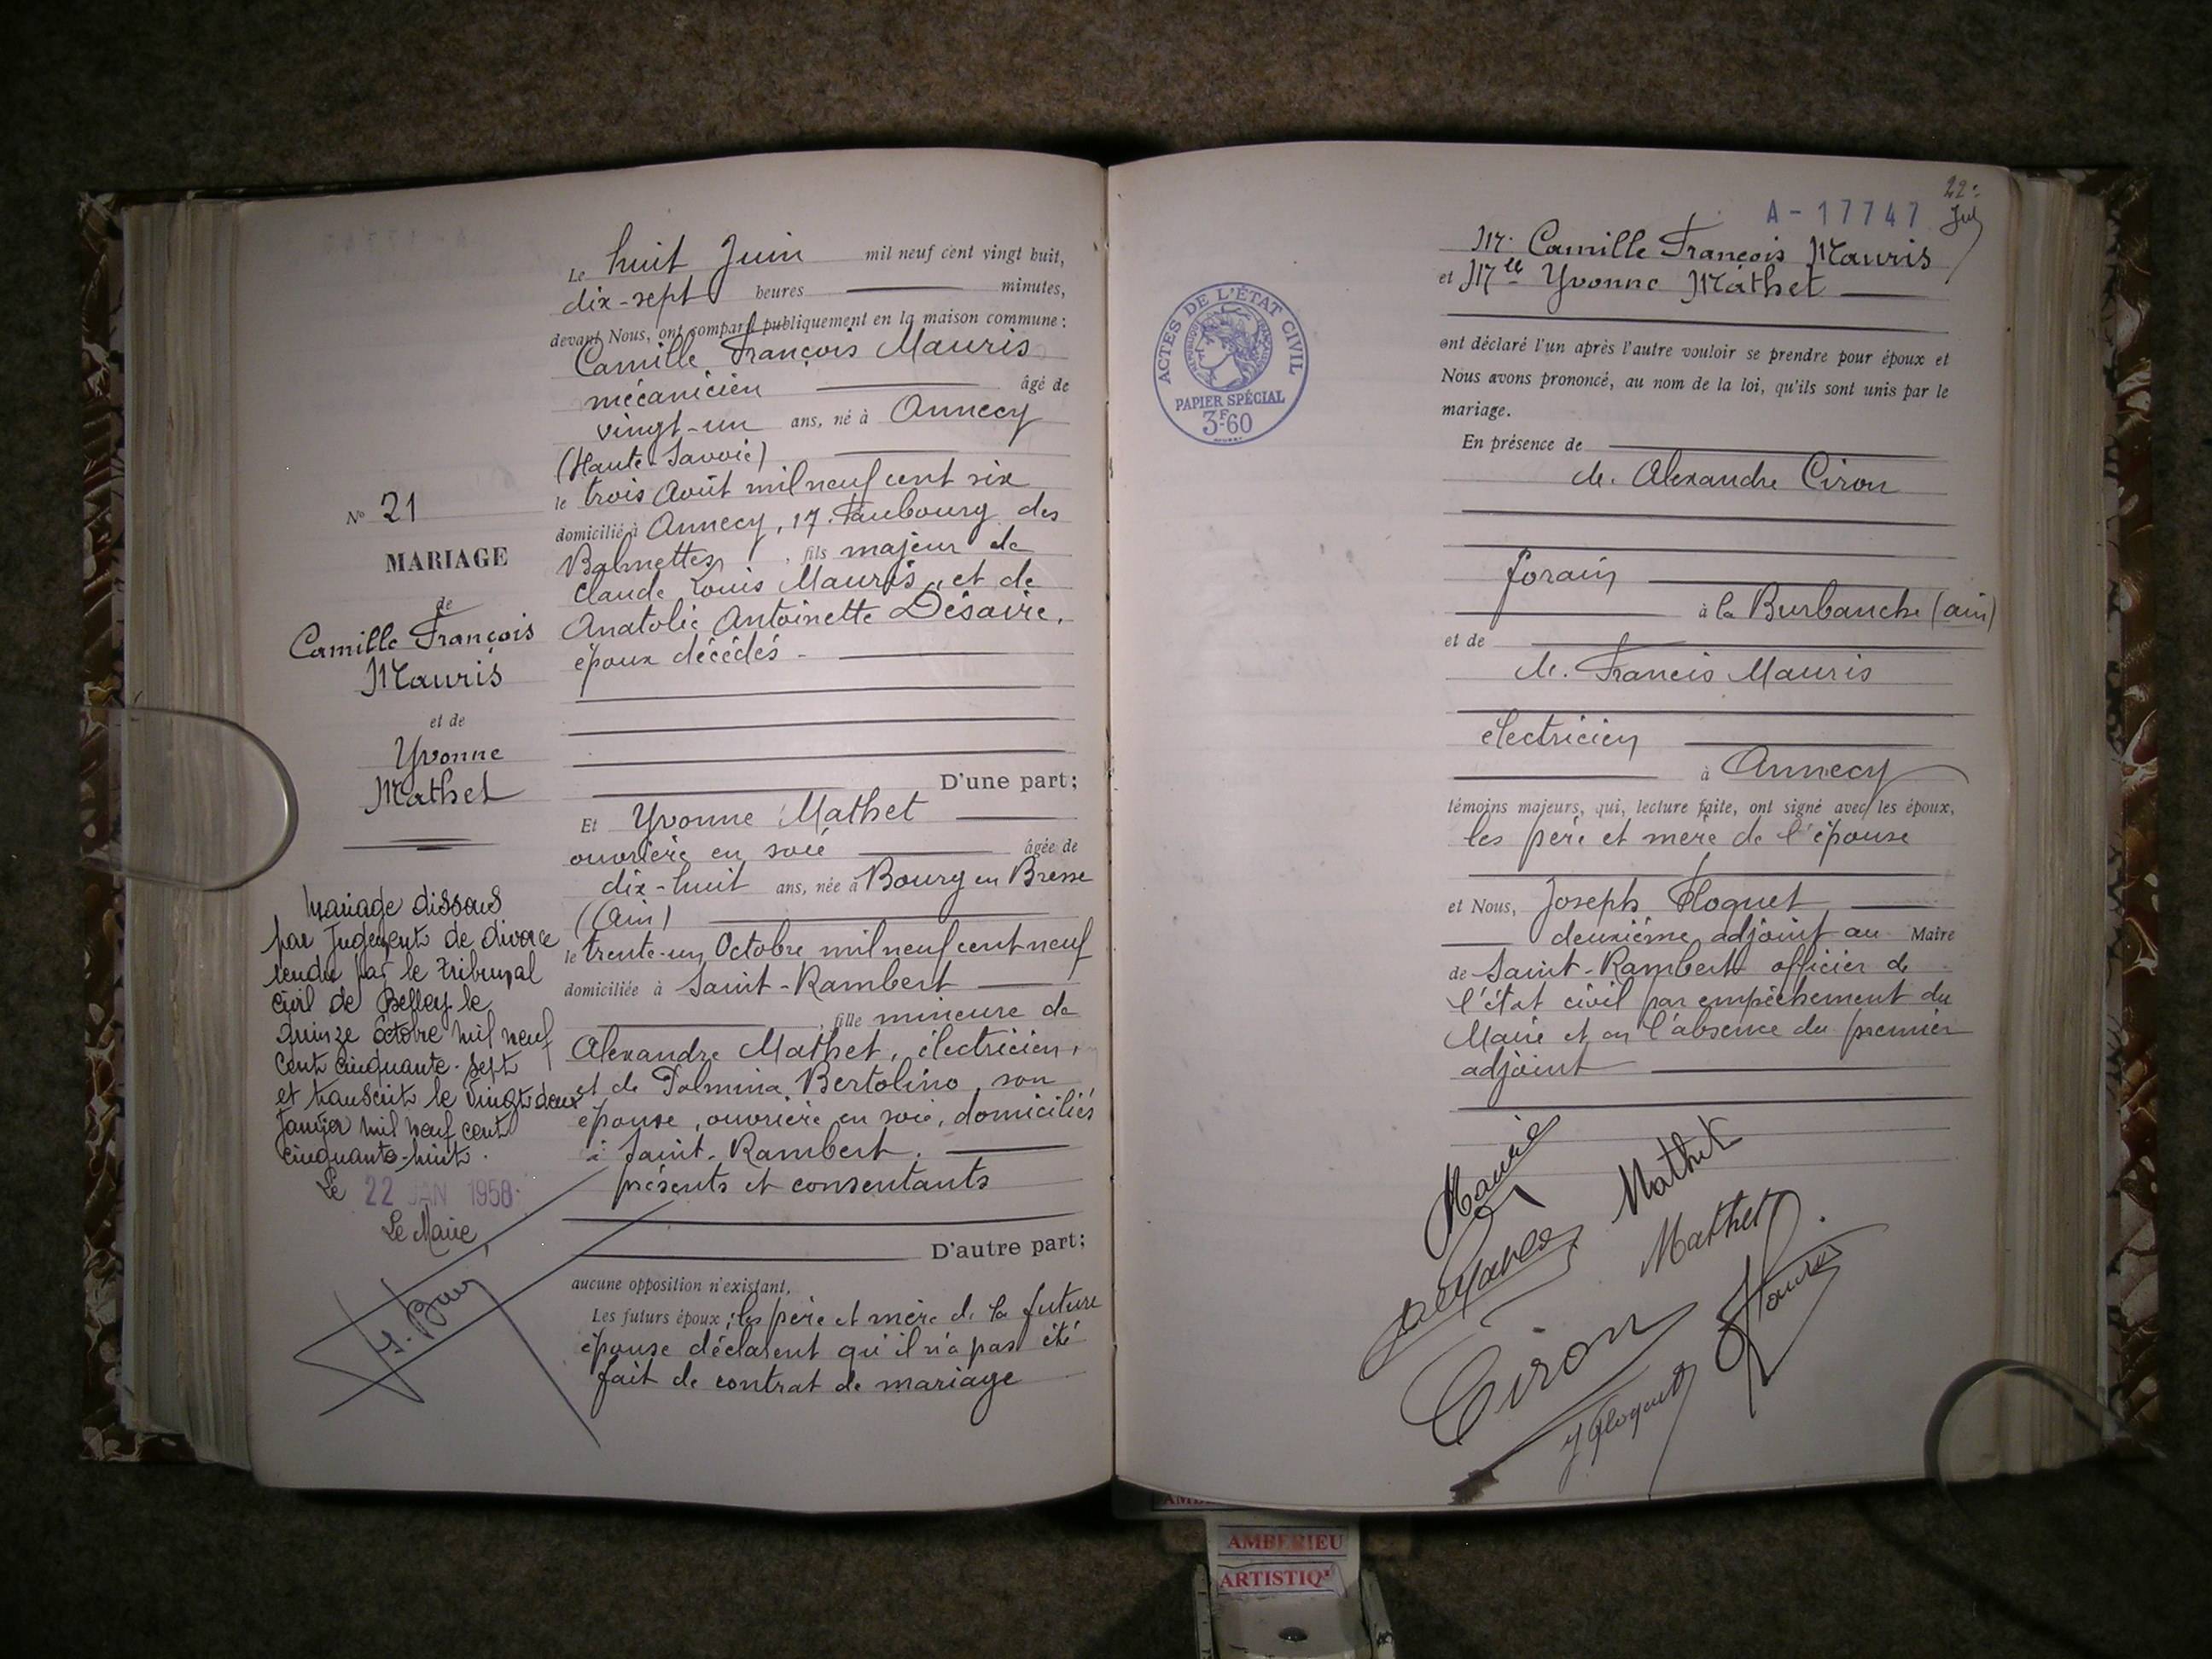 N° 21
MARIAGE
de
Camille François
Mauris
et de
Yvonne
Mathet
Mariage dissous
par Jugement de divorce
rendu par le tribunal
civil de Belley le
quinze Octobre mil neuf
cent cinquante-sept
et transcrit le vingt deux
Janvier mil neuf cent
cinquante-huit.
Le 22 JAN 1958
Le Maire,
Le huit Juin mil neuf cent vingt huit,
dix-sept heures minutes,
devant Nous, ont comparu publiquement en la maison commune :
Camille François Mauris
mécanicien âgé de
vingt-un ans, né à Annecy
(Haute-Savoie)
le trois Août mil neuf cent six
domicilié à Annecy, 17. Faubourg des
Balmettes, fils majeur de
Claude Louis Mauris et de
Anatolie Antoinette Désaire,
époux décédés -
D'une part;
Et Yvonne Mathet
ouvrière en soie âgée de
dix-huit ans, née à Bourg en Bresse
(Ain)
le trente-un Octobre mil neuf cent neuf
domiciliée à Saint-Rambert
, fille mineure de
Alexandre Mathet, électricien,
et de Palmina Bertolino, son
épouse, ouvrière en soie, domiciliés
à Saint-Rambert.
présents et consentants
D'autre part;
aucune opposition n'existant,
Les futurs époux ; les père et mère de la future
épouse déclarent qu'il n'a pas été
fait de contrat de mariage
22.
A-17747
Mr. Camille François Mauris
et Mlle Yvonne Mathet
ont déclaré l'un après l'autre vouloir se prendre pour époux et
Nous avons prononcé, au nom de la loi, qu'ils sont unis par le
mariage.
ACTES DE L'ÉTAT CIVIL
PAPIER SPÉCIAL
3F60
En présence de
M. Alexandre Ciron
forain
à la Burbanche (Ain)
et de
M. Francis Mauris
électricien
à Annecy
témoins majeurs, qui, lecture faite, ont signé avec les époux,
les père et mère de l'épouse
et Nous, Joseph Floquet
deuxième adjoint au Maire
de Saint-Rambert officier de
l'état civil par empêchement du
Maire et en l'absence du premier
adjoint
Mauris
Mathet
Mathet
Ciron
J Floquet
AMBERIEU
ARTISTIQ